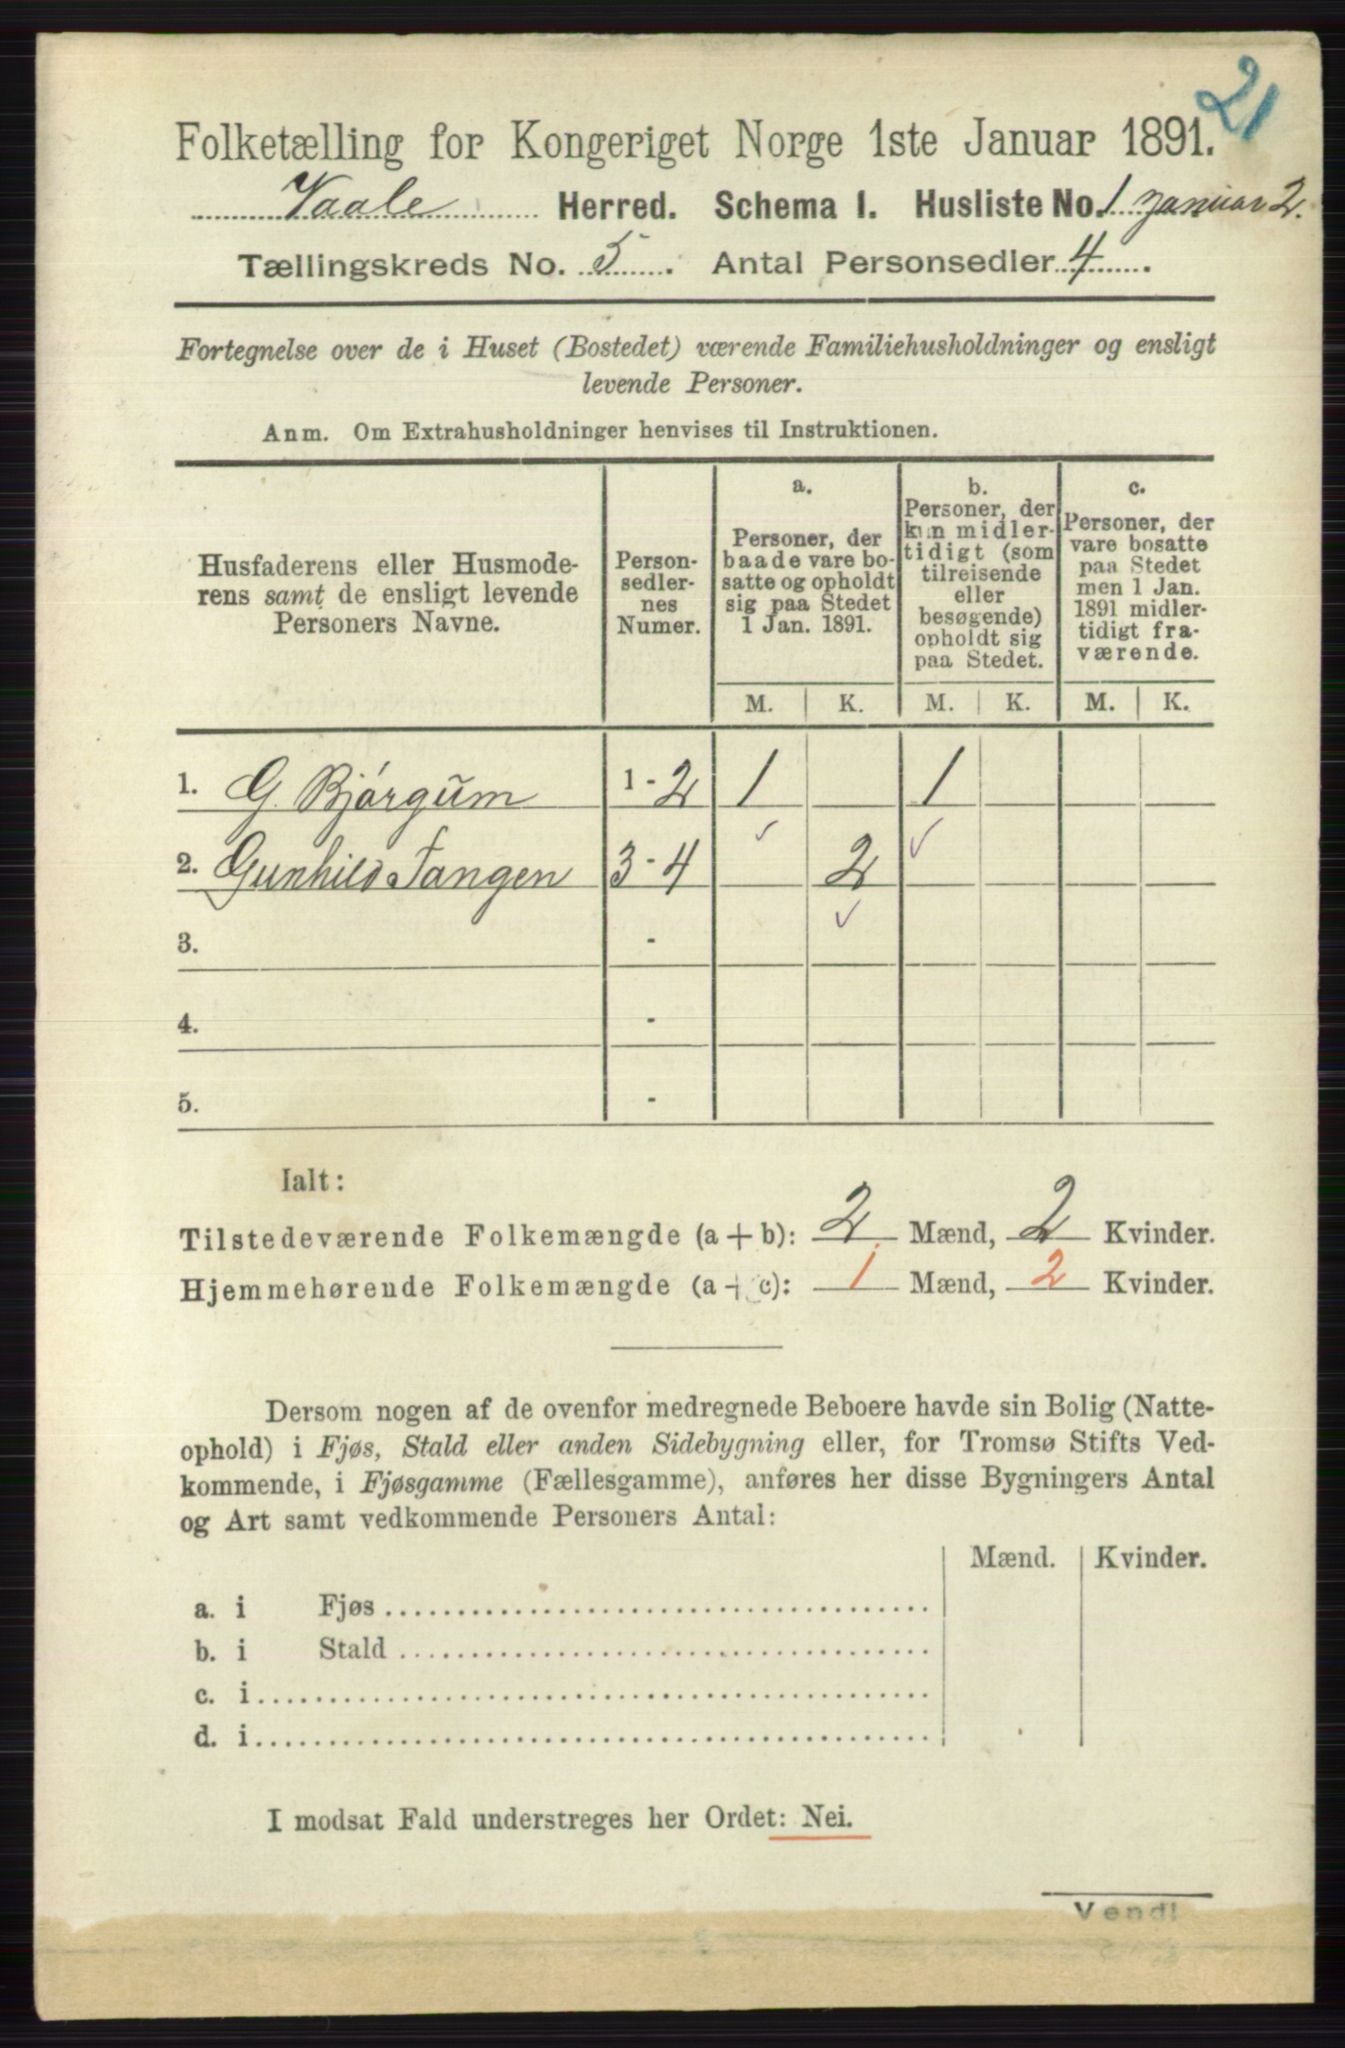 21
Folketælling for Kongeriget Norge 1ste Januar 1891.
Vaale Herred. Schema 1. Husliste No. 1 januar 2.
Tællingskreds No. 5. Antal Personsedler 4.
Fortegnelse over de i Huset (Bostedet) værende Familiehusholdninger og ensligt
levende Personer.
Anm. Om Extrahusholdninger henvises til Instruktionen.
Husfaderens eller Husmode-
rens samt de ensligt levende
Personers Navne.
Person-
sedler-
nes
Numer.
a.
Personer, der
baade vare bo-
satte og opholdt
sig paa Stedet
1 Jan. 1891.
b.
Personer, der
kun midler-
tidigt (som
tilreisende
eller
besøgende)
opholdt sig
paa Stedet.
c.
Personer, der
vare bosatte
paa Stedet
men 1 Jan.
1891 midler-
tidigt fra-
værende.
M. K. M. K. M. K.
1. G. Bjórgum 1 - 2 1 1
2. Gunhild Tangen 3 - 4 2
3. -
4. -
5. -
Ialt:
Tilstedeværende Folkemængde (a + b): 2 Mænd, 2 Kvinder.
Hjemmehørende Folkemængde (a + c): 1 Mænd, 2 Kvinder.
Dersom nogen af de ovenfor medregnede Beboere havde sin Bolig (Natte-
ophold) i Fjøs, Stald eller anden Sidebygning eller, for Tromsø Stifts Ved-
kommende, i Fjøsgamme (Fællesgamme), anføres her disse Bygningers Antal
og Art samt vedkommende Personers Antal:
Mænd. Kvinder.
a. i Fjøs
b. i Stald
c. i
d. i
I modsat Fald understreges her Ordet: Nei.
Vend!